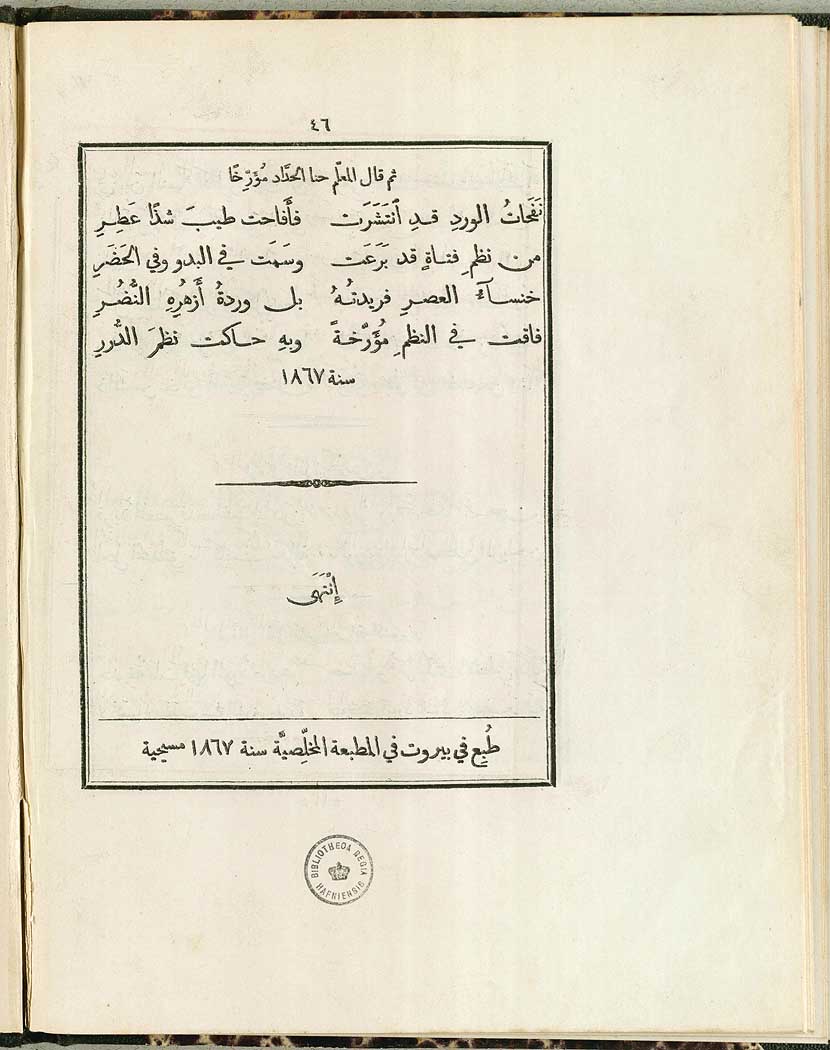 ٤٦
ثم قال المعلّم حنا الحدَّاد مُؤَرِّخًا
نَفَحَاتُ الوردِ قــدِ ٱنتَشَرَت فأَفاحت طيبَ شذًا عَطِرِ
من نظمِ فتاةٍ قد بَرَعَت وسَمَت في البدو وفي الحَضَرِ
خنسآءُ العصرِ فريدتُهُ بل وردةُ أَزهُرِهِ النُّضُرِ
فاقت في النظمِ مُؤَرَّخةً وبهِ حاكت نظمَ الدُّررِ
سنة ١٨٦٧
إِنْتَهَى
طُبِع في بيروت في المطبعة المخلّصيَّة سنة ١٨٦٧ مسيحية
BIBLIOTHECA REGIA HAFNIENSIS